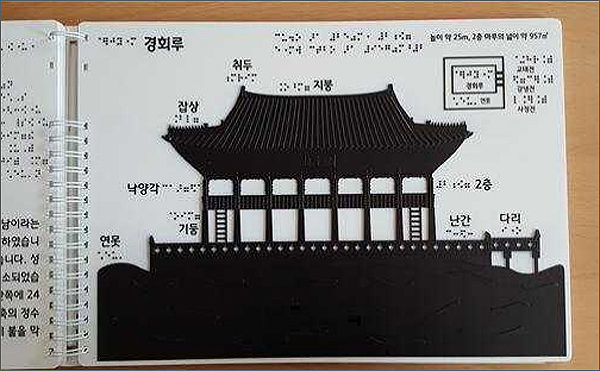 경회루
높이 약 25m, 2층 마루의 넓이 약 957㎡
취두
지붕
잡상
경회루
연못
교태전
강녕전
사정전
낙양각
2층
기둥
난간
다리
연못
남이라는
하였습니
니다. 성
소되었습
한쪽에 24
축의 정수
불을 막